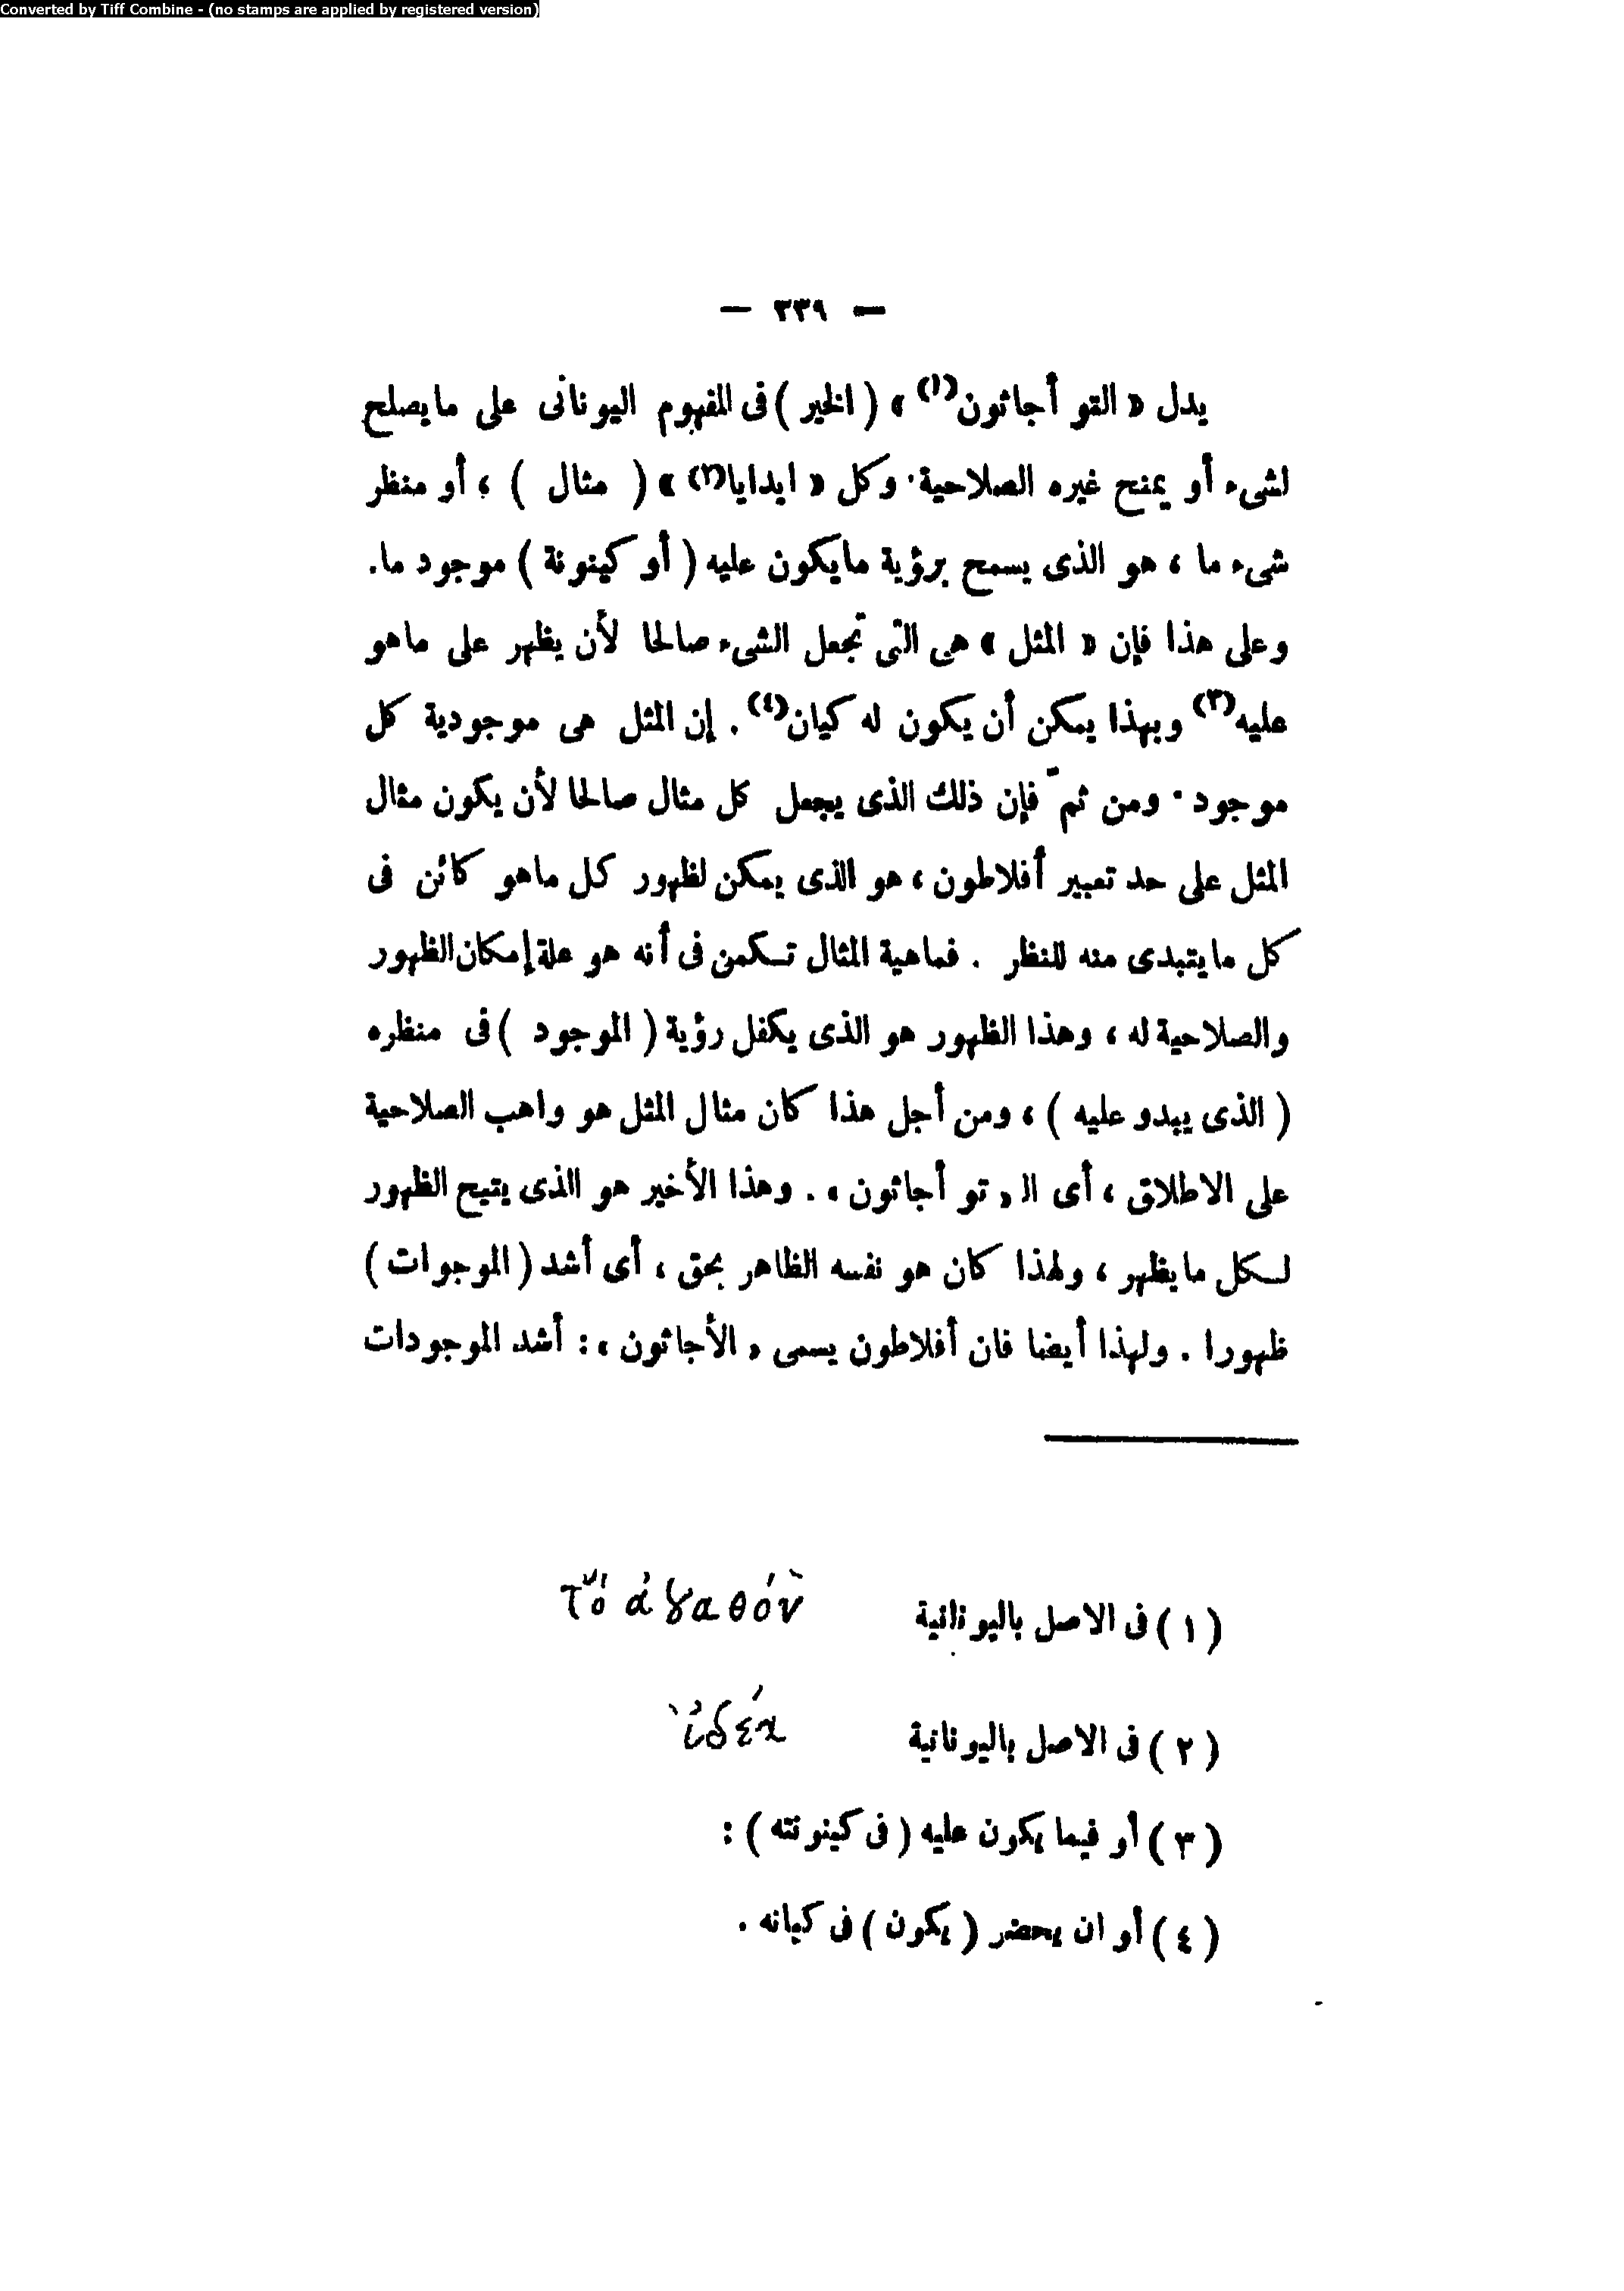 Converted by Tiff Combine - (no stamps are applied by registered version)
— ٣٣٩ —
يدل « التو أجاثون(١) » ( الخير ) فى المفهوم اليونانى على مايصلح
لشىء أو يمنح غيره الصلاحية. وكل « ايدايا(٢) » ( مثال ) ، أو منظر
شىء ما ، هو الذى يسمح برؤية مايكون عليه ( أو كينونة ) موجود ما.
وعلى هذا فإن « المثل » هى التى تجعل الشىء صالحا لأن يظهر على ماهو
عليه(٣) وبهذا يمكن أن يكون له كيان(٤) . إن المثل هى موجودية كل
موجود . ومن ثمّ فإن ذلك الذى يجعل كل مثال صالحا لأن يكون مثال
المثل على حد تعبير أفلاطون ، هو الذى يمكن لظهور كل ماهو كائن فى
كل مايتبدى منه للنظر . فماهية المثال تكمن فى أنه هو علة إمكان الظهور
والصلاحية له ، وهذا الظهور هو الذى يكفل رؤية ( الموجود ) فى منظره
( الذى يبدو عليه ) ، ومن أجل هذا كان مثال المثل هو واهب الصلاحية
على الاطلاق ، أى الـ « تو أجاثون » . وهذا الأخير هو االذى يتيح الظهور
لكل مايظهر ، ولهذا كان هو نفسه الظاهر بحق ، أى أشد ( الموجوات )
ظهورا . ولهذا أيضا فان أفلاطون يسمى « الأجاثون » : أشد الموجودات
( ١ ) فى الاصل باليونانية τὸ ἀγαθόν
( ٢ ) فى الاصل باليونانية ἰδέα
( ٣ ) أو فيما يكون عليه ( فى كينونته ) :
( ٤ ) أو ان يحضر ( يكون ) فى كيانه .